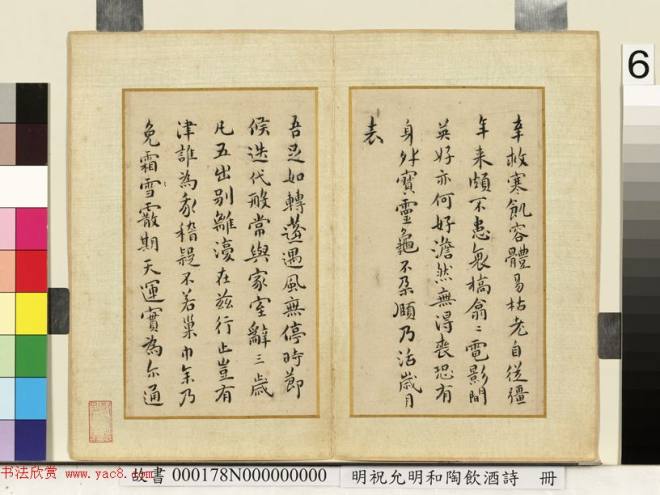 幸救寒飢容體易枯老自從彊
年来頗不患衰槁翕〻電影間
英好亦何好澹然無得喪恐有
身外寶靈龜不朶頤乃活歲月
表
吾足如轉蓬遇風無停時節
候迭代般常與家室辭三歲
凡五出别離濩在兹行止豈有
津誰為豙稽疑不若巢巾年乃
免霜雪霰期天運實為尔通
6
故書 000178N000000000 明祝允明和陶飲酒詩 冊
书法欣赏 www.yac8.com